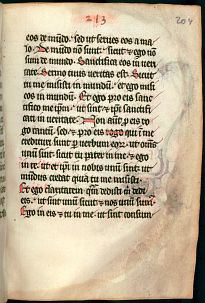 213
eos de mūdo. sed ut serues eos a ma
lo. De mūdo nō sunt. sicut & ego nō
sum de mundo. Sanctifica eos in veri
tate. Sermo tuus veritas est. Sicut
tu me misisti in mundū. et ego misi
eos in mundū. Et ego pro eis sanc
tifico me ipm̄. ut sint & ipī sanctifi
cati in veritate. Non aut̄ p eis ro
go tantū. sed & pro eis qui
credituri sunt p uerbum eoꝝ. ut om̄s
unū sint. sicut tu pater in me. & ego
in te. ut et ipī in nobis unū sint. ut
mūdus credat quia tu me misisti.
Et ego claritatem quā dedisti m̄ dedi
eis. ut sint unū sicut & nos unū sum̄.
Ego in eis & tu in me. ut sint consum